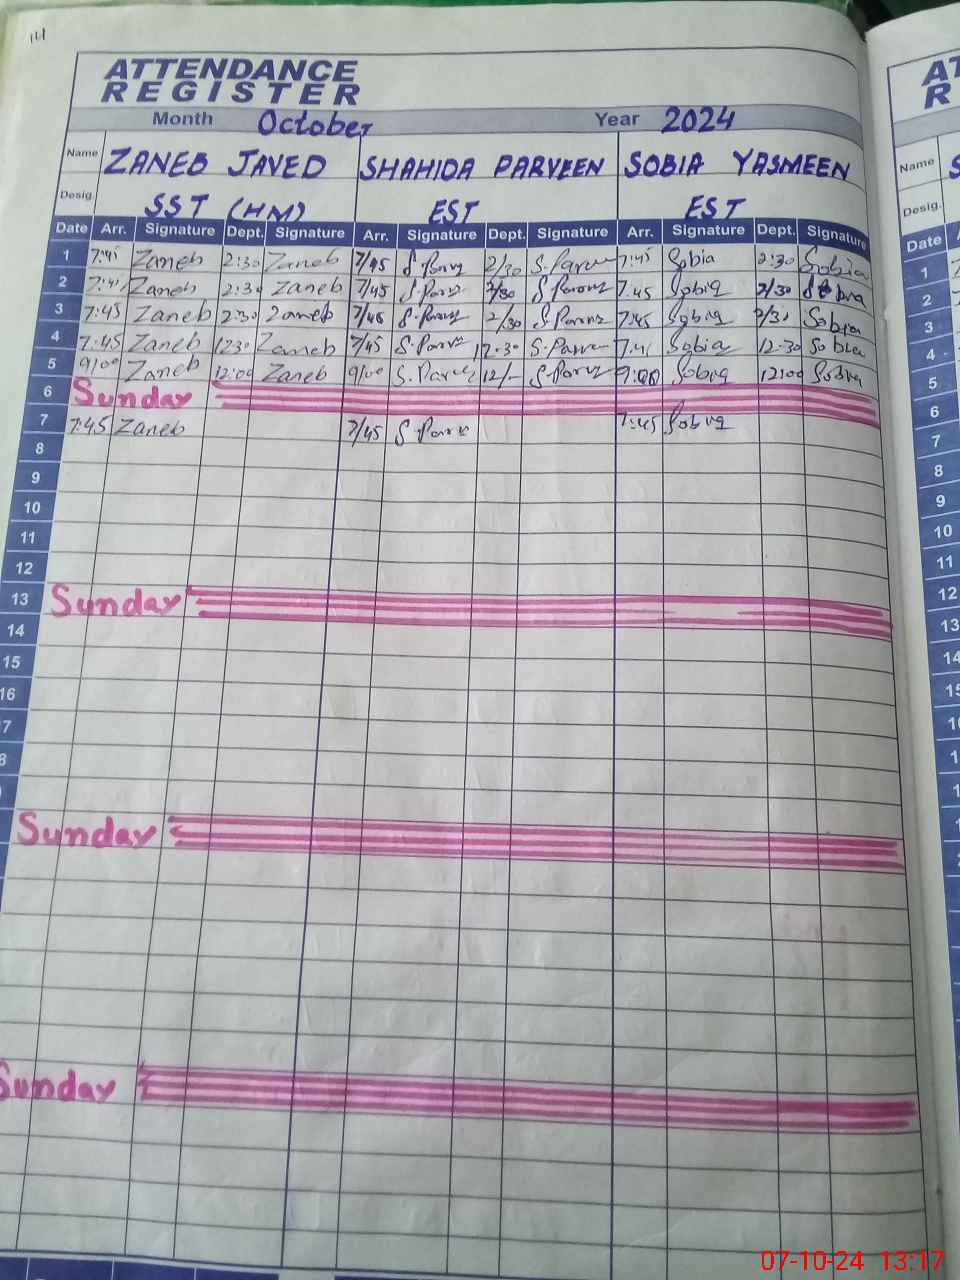 ATTENDANCE
REGISTER
Month October Year 2024
Name ZANEB JAVED SHAHIDA PARVEEN SOBIA YASMEEN Name
Desig. SST (HM) EST EST Desig.
Date Arr. Signature Dept. Signature Arr. Signature Dept. Signature Arr. Signature Dept. Signature Date
1 7:45 Zaneb 2:30 Zaneb 7/45 2/30 7:45 Sobia 2:30 Sobia 1
2 Zaneb 2:30 Zaneb 7/45 2/30 7:45 Sobia 2/30 Sobia 2
3 7:45 Zaneb 2:30 Zaneb 7/45 2/30 7:45 Sobia Sobia 3
4 7:45 Zaneb 12:30 Zaneb 7/45 12-30 Sobia 12-30 Sobia 4
5 9/00 Zaneb 12:00 Zaneb 9/00 12/- 9:00 Sobia 12:00 Sobia 5
6 Sunday 6
7 7:45 Zaneb 7/45 7:45 Sobia 7
8 8
9 9
10 10
11 11
12 12
13 Sunday 13
14 14
15
16
Sunday
Sunday
07-10-24 13:17